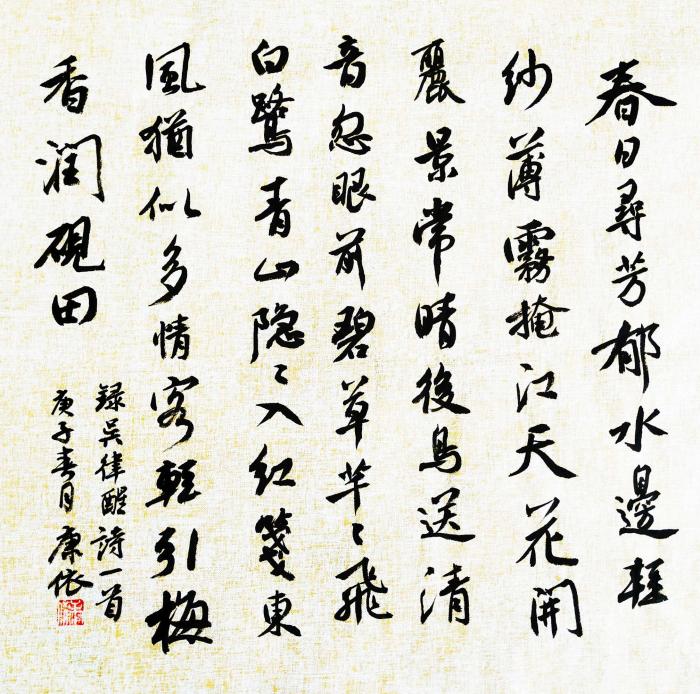 春日尋芳郁水邊輕
紗薄霧掩江天花開
麗景常晴後鳥送清
音忽眼前碧草芊〻飛
白鷺青山隐〻入紅箋東
風猶似多情客輕引梅
香潤硯田
録吴律醒詩一首
庚子春月康依